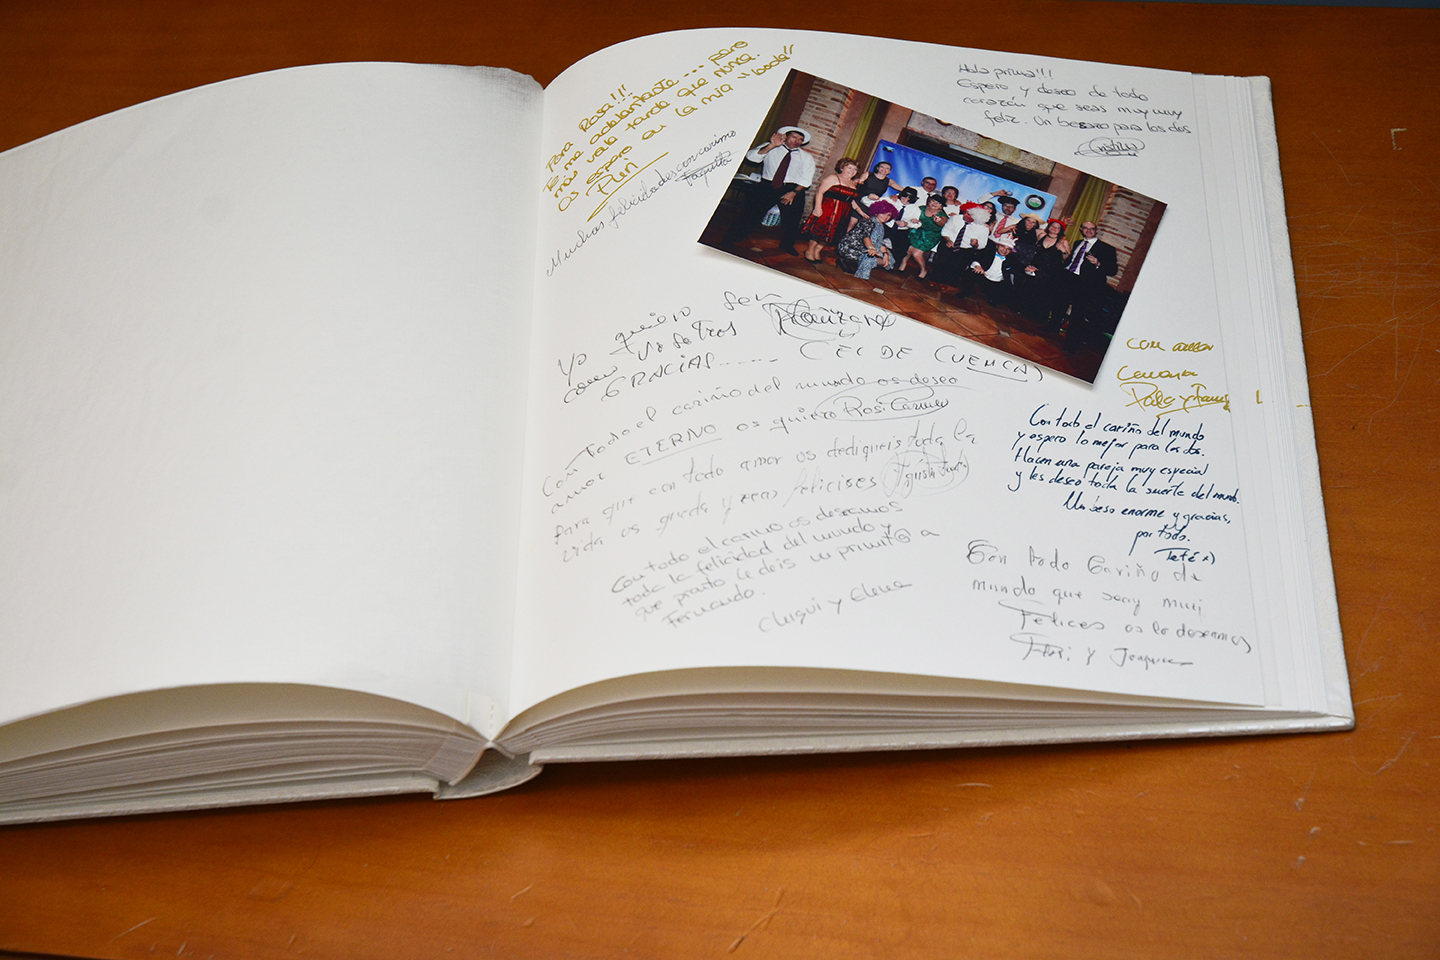 Para Rosa!!!
Te me adelantaste... pero
más vale tarde que nunca.
Os espero en la mía "boda"
Puri
Muchas felicidades con cariño
Paquita
Hola prima!!!
Espero y deseo de todo
corazón que seas muy muy
feliz. Un besazo para los dos
Cristina
Yo quiero ser
como vosotros
GRACIAS..... (EL DE CUENCA)
Con todo el cariño del mundo os deseo
amor ETERNO os quiero Rosi Carmen
para que con todo amor os dediqueis toda la
vida os queda y seas felicises
Con todo el cariño os deseamos
toda la felicidad del mundo y
que pronto le deis un primit@ a
Fernando.
Chiqui y Elena
con amor
Con todo el cariño del mundo
y espero lo mejor para los dos.
Hacen una pareja muy especial
y les deseo toda la suerte del mundo.
Un beso enorme y gracias,
por todo.
Teté
Con todo Cariño de
mundo que seay muy
Felices os lo deseamos